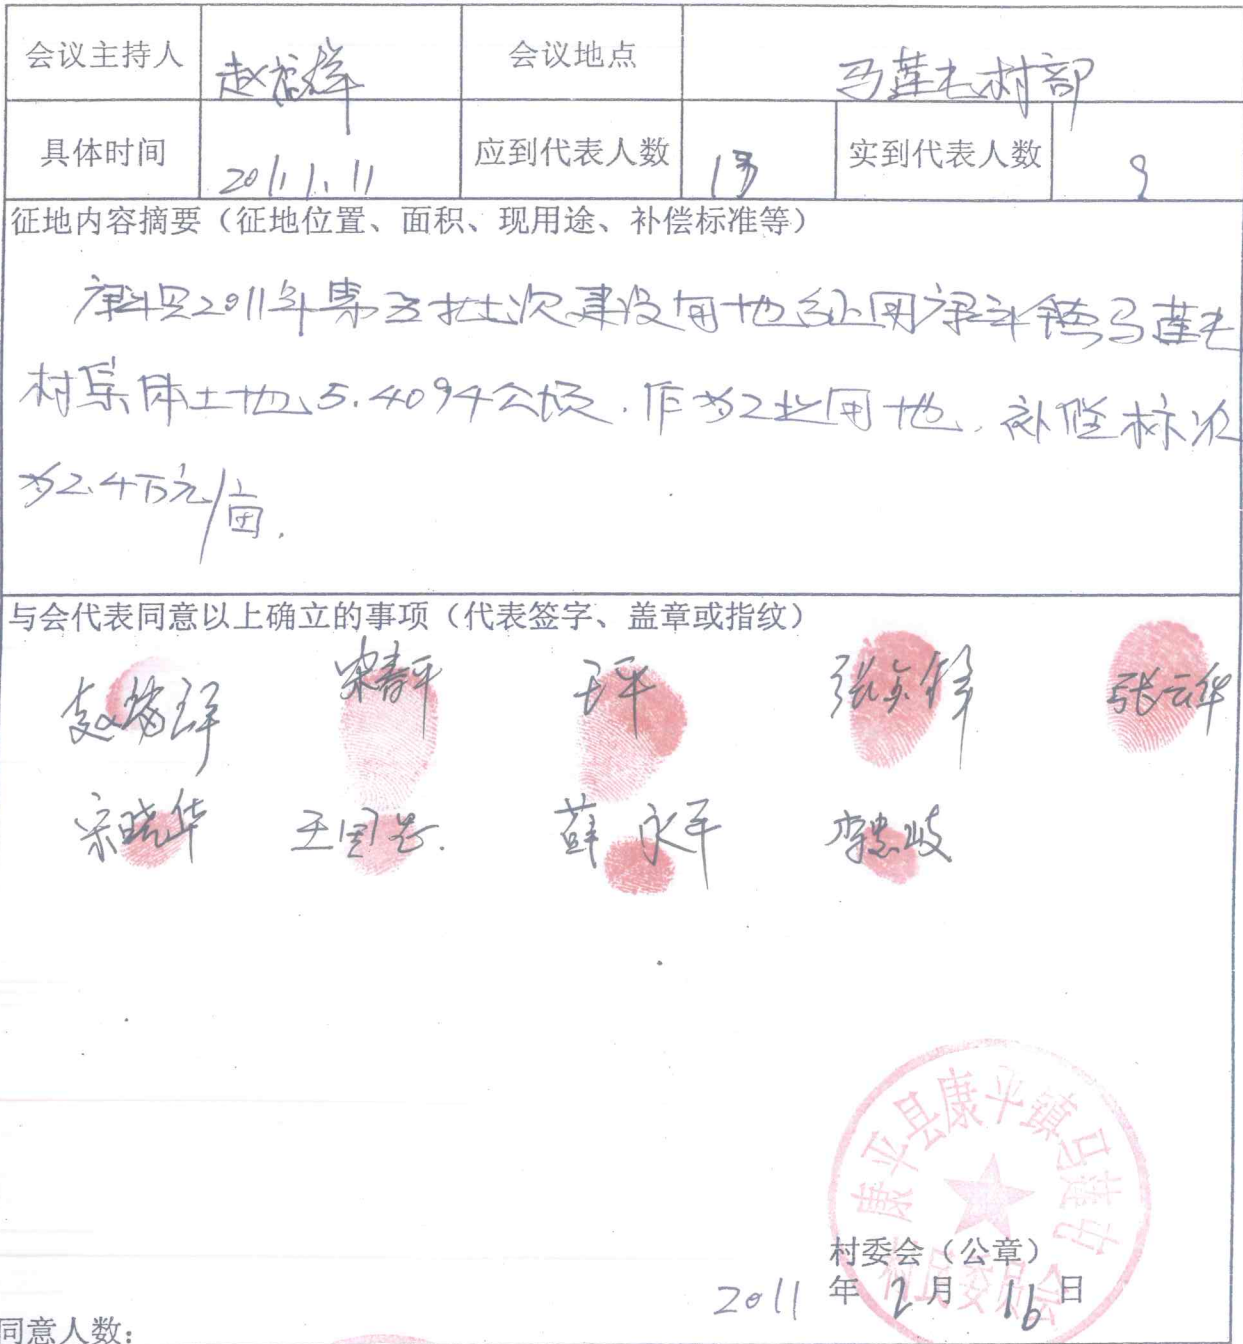 会议主持人 会议地点 马莲屯村部
具体时间 2011.1.11 应到代表人数 实到代表人数 9
征地内容摘要（征地位置、面积、现用途、补偿标准等）
康平县2011年第五批次建设用地 占用康平镇马莲屯
村集体土地5.4094公顷.作为工业用地.补偿标准
为2.4万元/亩.
与会代表同意以上确立的事项（代表签字、盖章或指纹）
宋春平 于平 张云华
宋晓华 王国忠. 薛永平 李惠岐
康平县康平镇马莲屯
村民委员会
村委会（公章）
2011年2月16日
同意人数：